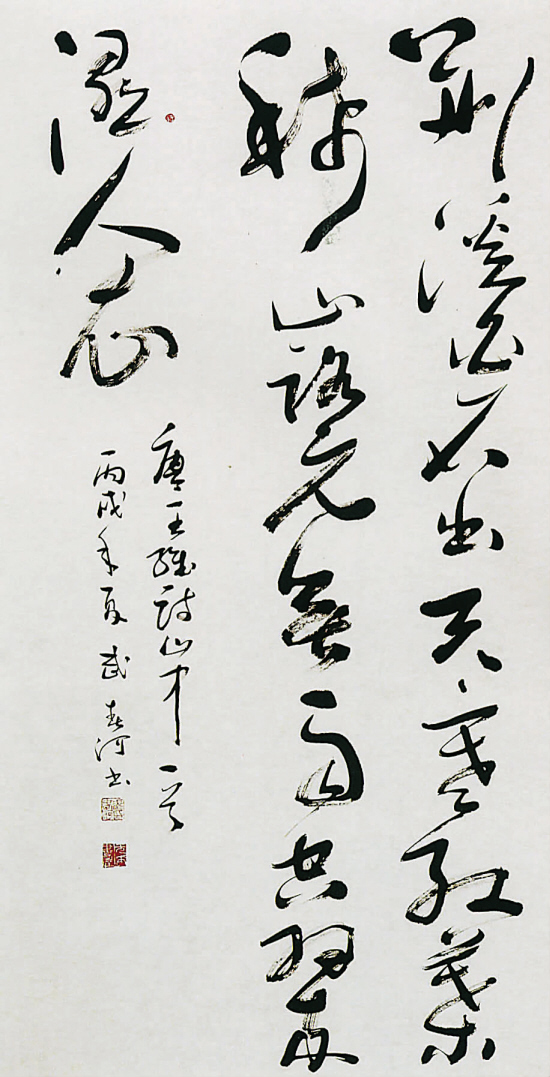 荆溪白石出天寒红叶
稀山路元无雨空翠
湿人衣
唐王维诗山中一首
丙戌年夏武春河书